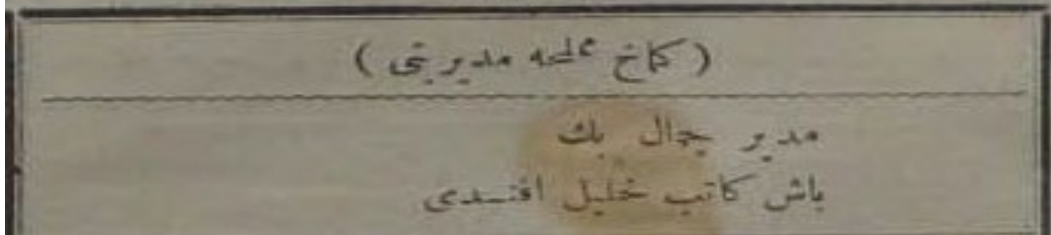 ( كماخ مملحه مديريتى )
مدير جمال بك
باش كاتب خليل افندى